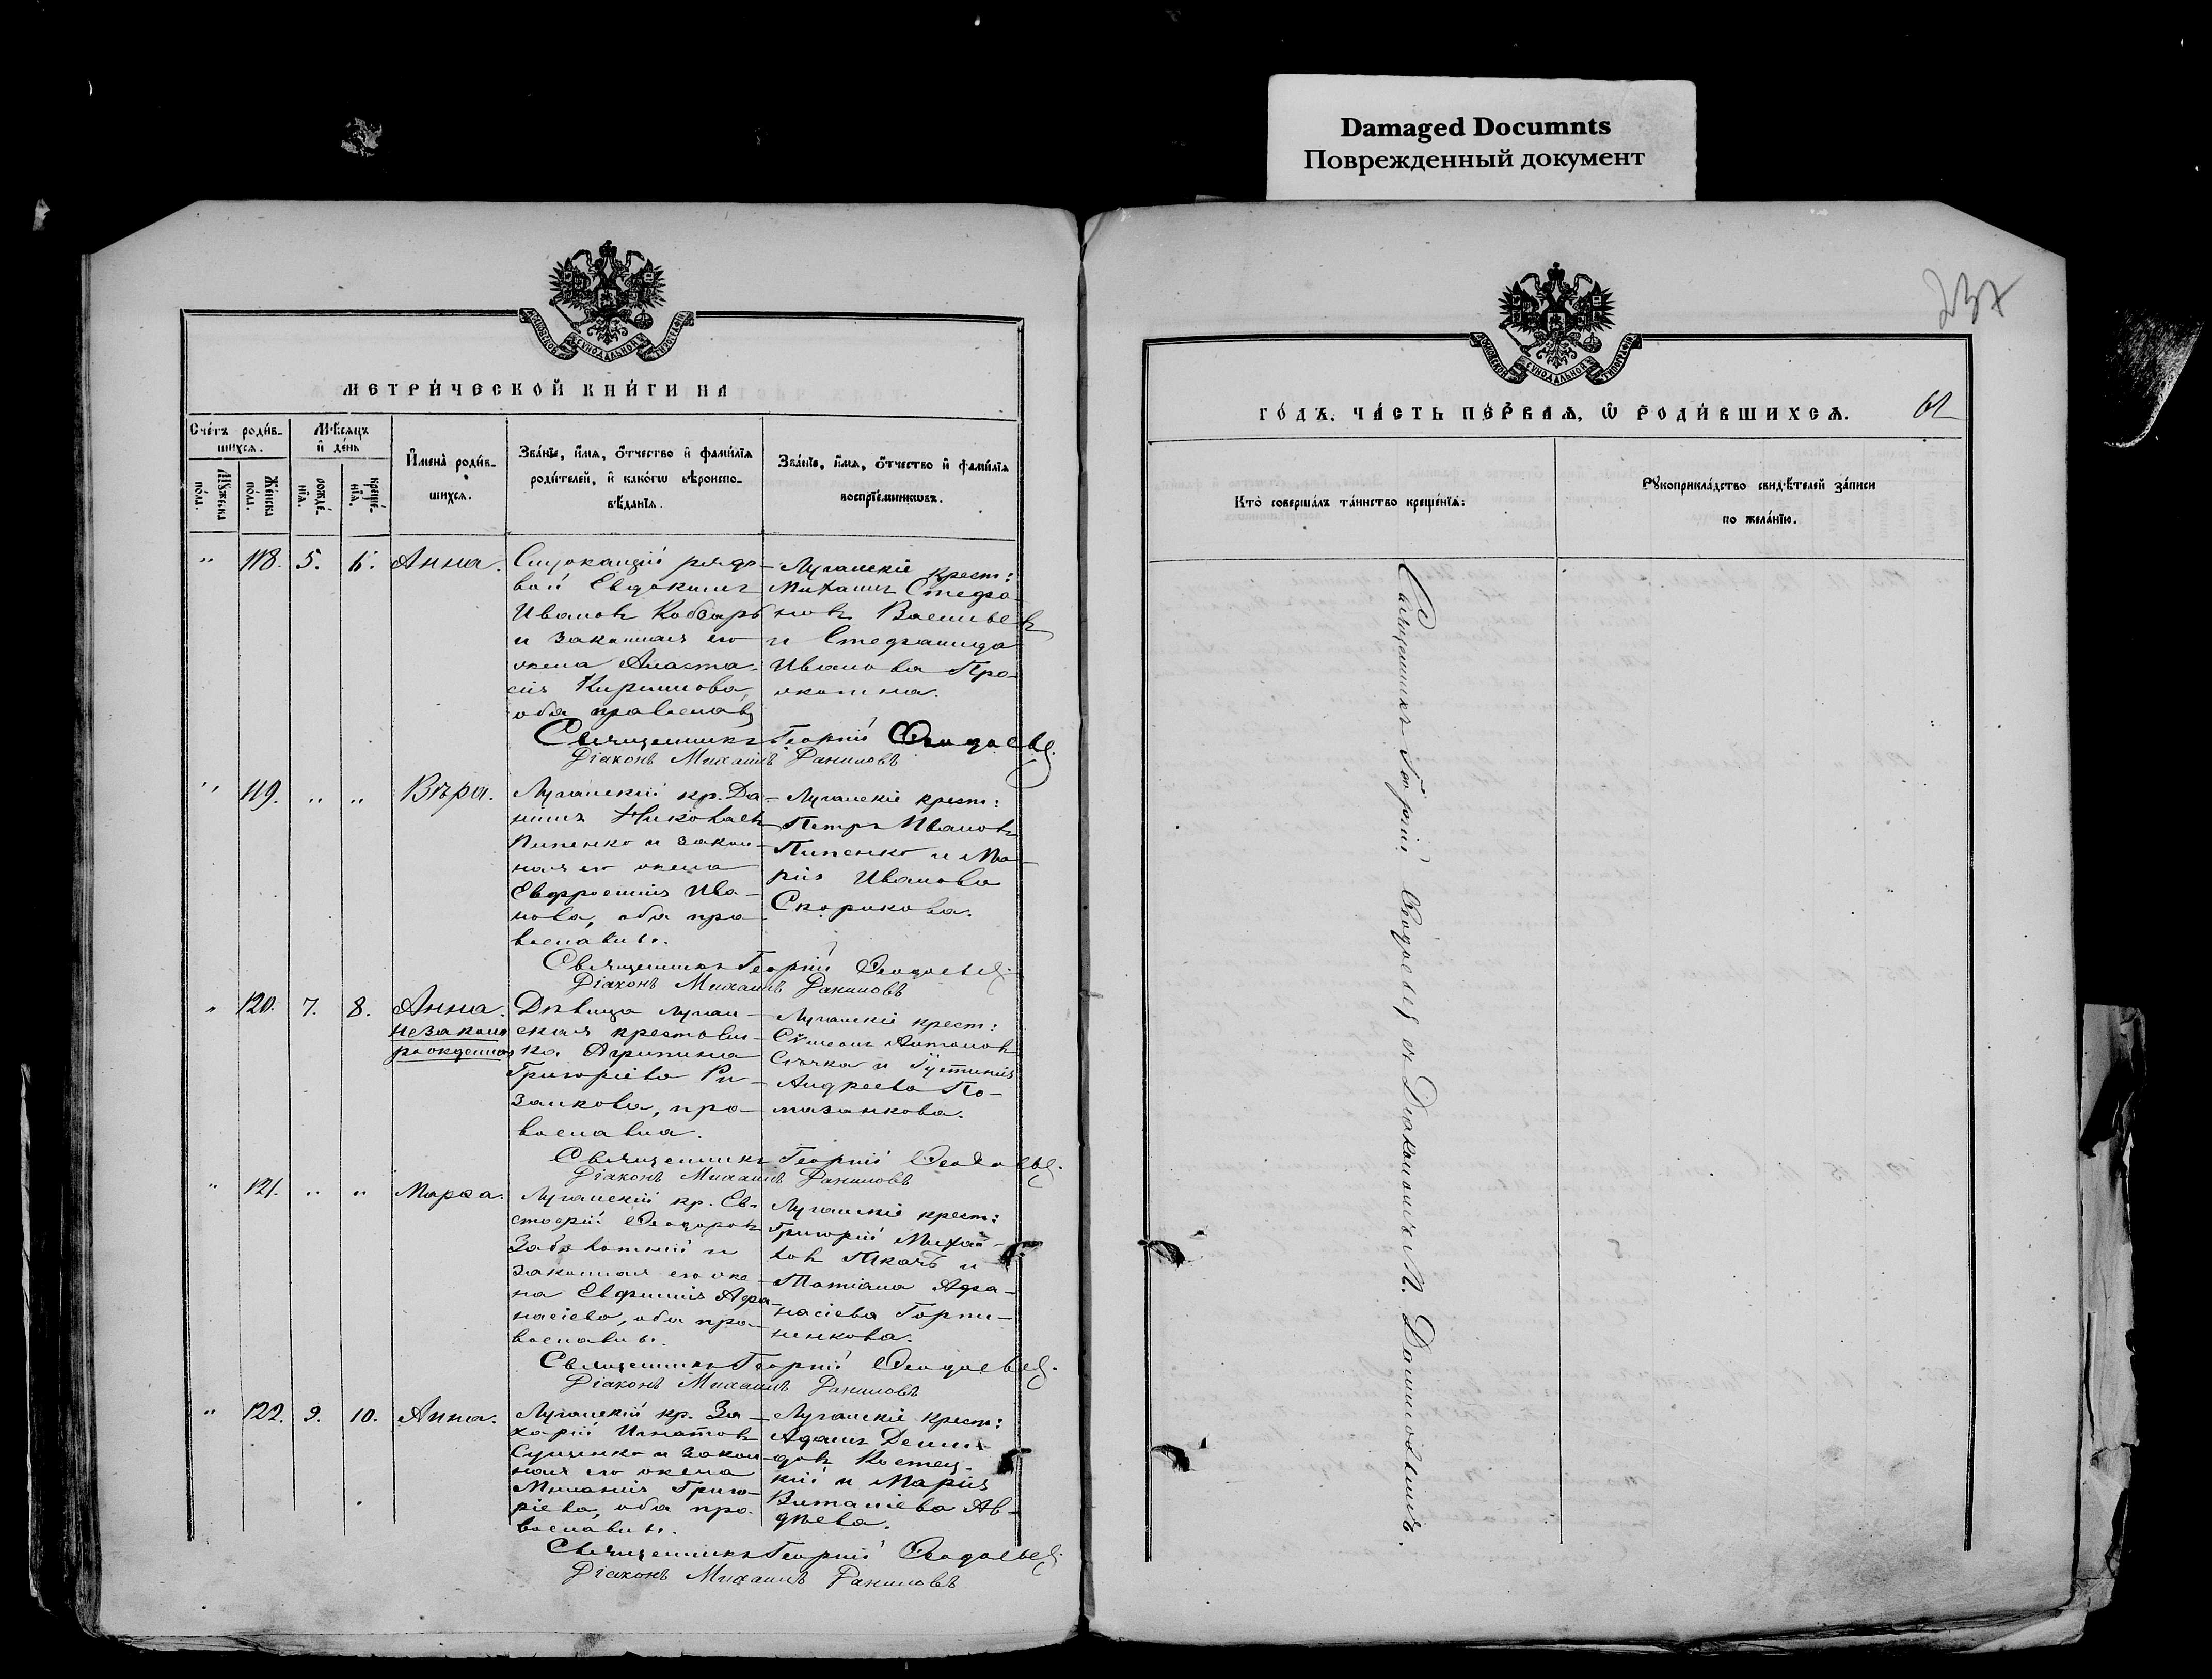 Damaged Documnts
Поврежденный документ
237
МОСКОВСКОЙ СѴНОДАЛЬНОЙ ТИПОГРАФІИ
МЕТРИ́ЧЕСКОЙ КНИ́ГИ НА
Сче́тъ роди́в-
шихсѧ.
Мꙋ́жеска по́ла.
Же́нска по́ла.
Мѣ́сѧцъ
и҆ де́нь
рожде́-нїѧ.
креще́-нїѧ.
И҆мена̀ роди́в-
шихсѧ.
Зва́нїе, и҆́мѧ, ѻ҆́тчество и҆ фами́лїѧ
роди́телей, и҆ како́гѡ вѣроиспо-
вѣ́данїѧ.
Зва́нїе, и҆́мѧ, ѻ҆́тчество и҆ фами́лїѧ
воспрїе́мникѡвъ.
" 118. 5. 6. Анна.
рядо-
вой Евдокимъ
Ивановъ Кобзарь
и законная его
жена Анаста-
сія Кириллова,
оба православ
Луганскіе крест:
Михаилъ Стефа-
новъ Васильевъ
и Стефанида
Иванова Про-
Священникъ Георгій
Діаконъ Михаилъ Даниловъ
" 119. " " Вѣра.
Луганскій кр. Да-
ніилъ Николаевъ
Пипенко и закон-
ная его жена
Евфросинія Ива-
нова, оба пра-
вославны.
Луганскіе крест:
Петръ Ивановъ
Пипенко и Ма-
рія Иванова
Скорикова.
Священникъ Георгій
Діаконъ Михаилъ Даниловъ
" 120. 7. 8. Анна.
незаконно
рожденная
Дѣвица луган-
ская крестьян-
ка Агрипина
Григоріева Ри-
занкова, пра-
вославна.
Луганскіе крест:
Сѵмеонъ Антоновъ
Сѣчка и Іустинія
Андреева По-
мазанкова.
Священникъ Георгій
Діаконъ Михаилъ Даниловъ
" 121. " " Марѳа.
Луганскій кр. Ев-
стафій Ѳеодоровъ
Заболотній и
законная его же-
на Евфимія Афа-
насіева, оба пра-
вославны.
Луганскіе крест:
Григорій Михай-
ловъ Ткачъ и
Татіана Афа-
насіева Горпи-
ненкова.
Священникъ Георгій
Діаконъ Михаилъ Даниловъ
" 122. 9. 10. Анна.
Луганскій кр. За-
харій Игнатовъ
Сущенко и закон-
ная его жена
Меланія Григо-
ріева, оба пра-
вославны.
Луганскіе крест:
Адамъ Деми-
довъ Костец-
кій и Марія
Виталіева Ав-
дѣева.
Священникъ Георгій
Діаконъ Михаилъ Даниловъ
МОСКОВСКОЙ СѴНОДАЛЬНОЙ ТИПОГРАФІИ
ГО́ДЪ, ЧА́СТЬ ПЕ́РВАѦ, Ѡ҆ РОДИ́ВШИХСѦ.
Кто̀ соверша́лъ та́инство креще́нїѧ:
Рꙋкоприкла́дство свидѣ́телей за́писи
по жела́нїю.
Священникъ Георгій съ Діакономъ М. Даниловымъ.